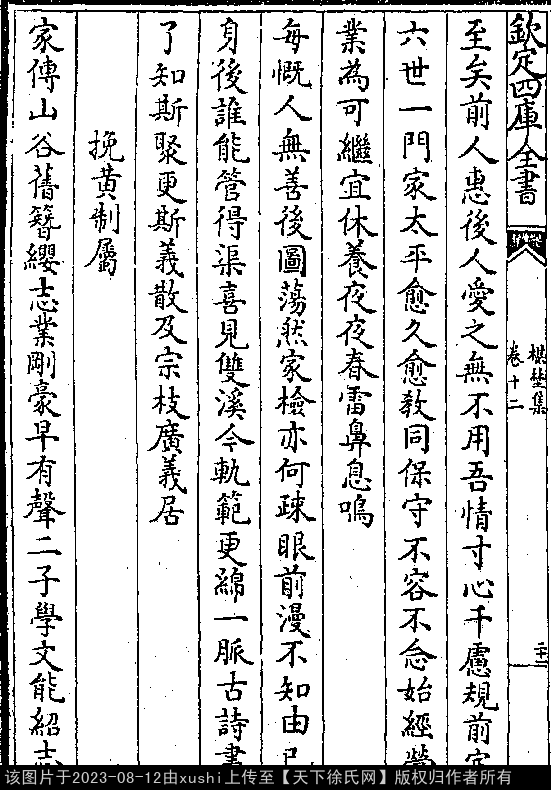 欽定四庫全書
楳埜集
卷十二
二十二
至矣前人惠後人愛之無不用吾情寸心千慮規前定
六世一門家太平愈久愈敎同保守不容不念始經營
業為可繼宜休養夜夜春雷鼻息鳴
每慨人無善後圖蕩然家檢亦何疎眼前漫不知由已
身後誰能管得渠喜見雙溪今軌範更綿一脈古詩書
了知斯聚更斯義散及宗枝廣義居
挽黄制屬
家傳山谷舊簪纓志業剛豪早有聲二子學文能紹志
该图片于2023-08-12由xushi上传至【天下徐氏网】版权归作者所有